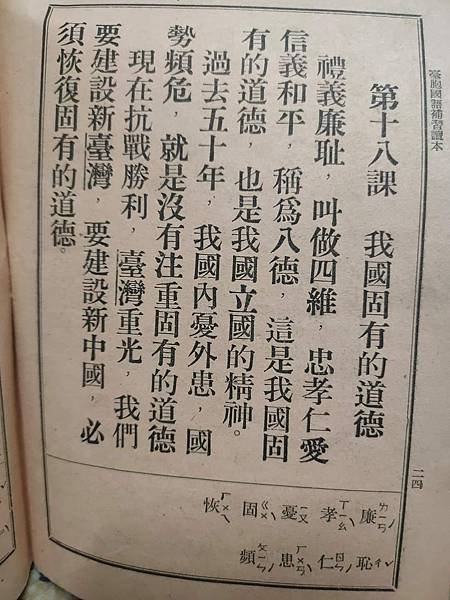 臺胞國語補習讀本
第十八課　我國固有的道德
禮義廉耻，叫做四維，忠孝仁愛
信義和平，稱爲八德，這是我國固
有的道德，也是我國立國的精神。
過去五十年，我國內憂外患，國
勢頻危，就是沒有注重固有的道德
現在抗戰勝利，臺灣重光，我們
要建設新臺灣，要建設新中國，必
須恢復固有的道德。
二四
廉ㄌㄧㄢˊ　恥ㄔˇ
孝ㄒㄧㄠˋ　仁ㄖㄣˊ
憂ㄧㄡ　患ㄏㄨㄢˋ
固ㄍㄨˋ　頻ㄆㄧㄣˊ
恢ㄏㄨㄟ